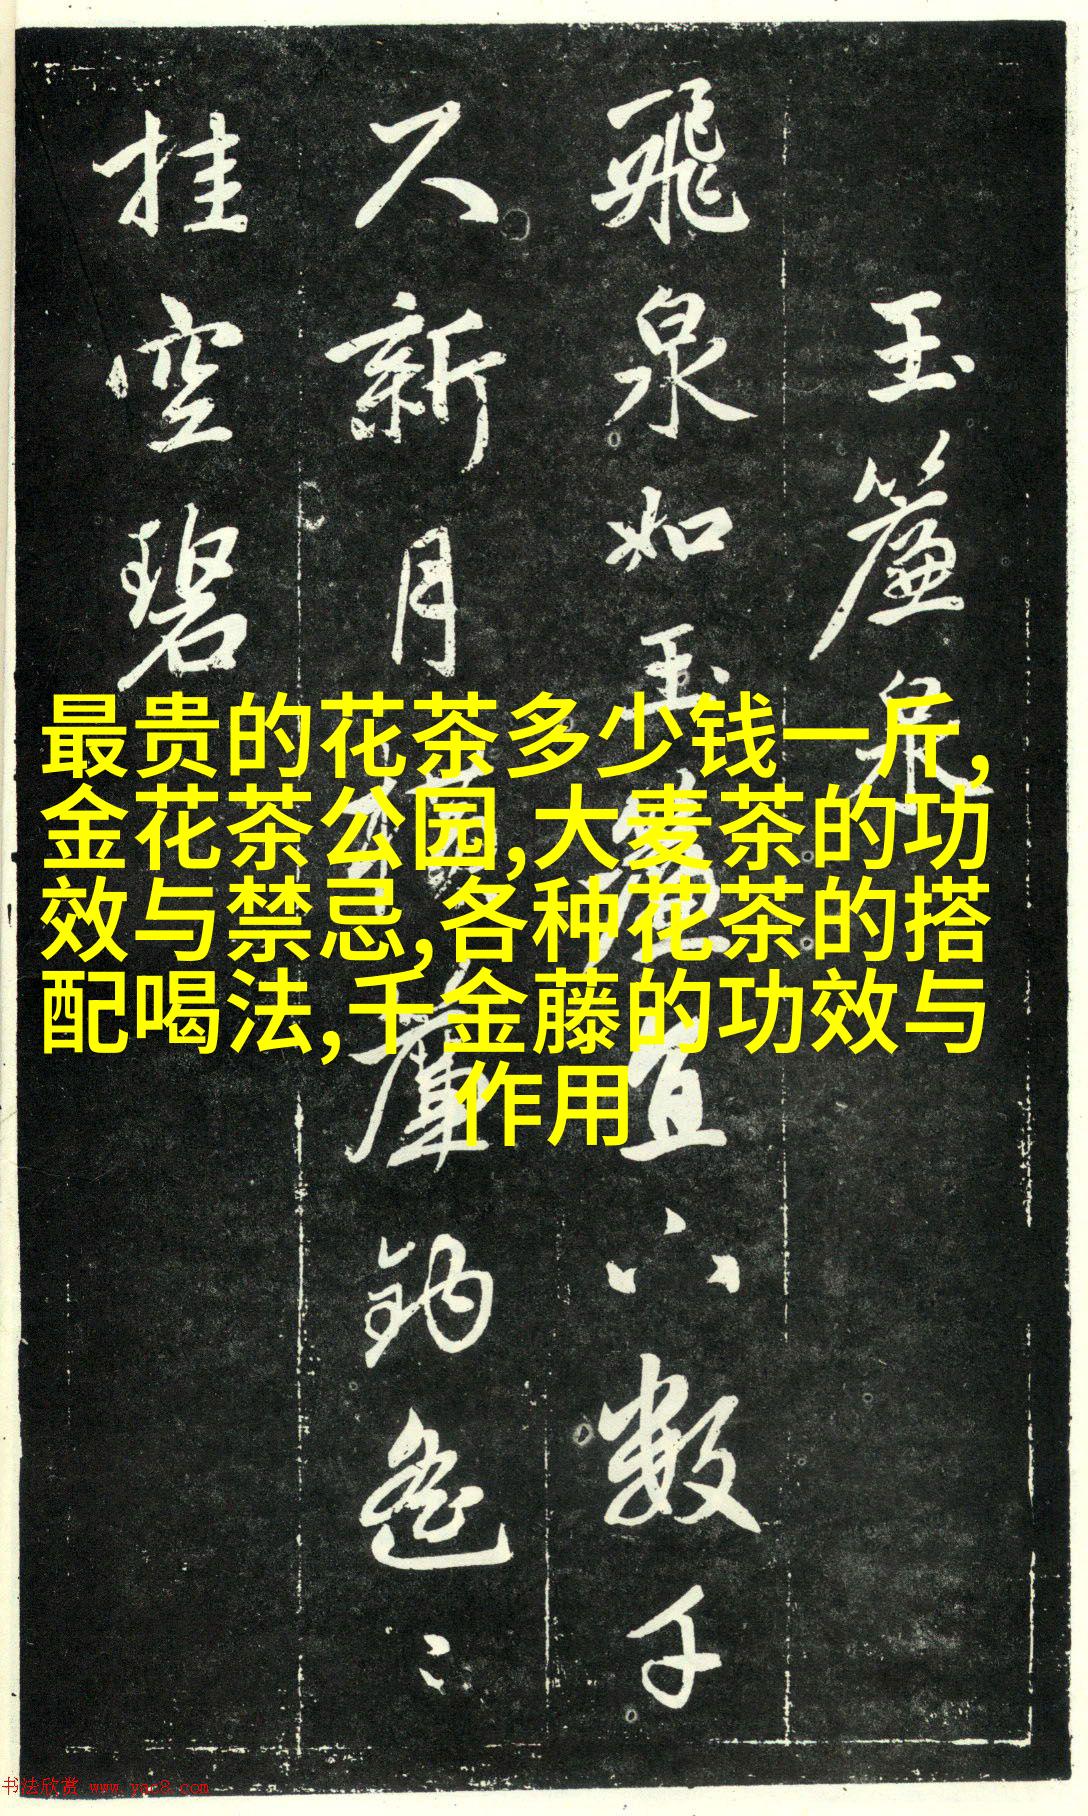 玉簾泉
飛泉如玉簾直下數千
尺新月橫簾鈎遙〻
挂空碧
最贵的花茶多少钱一斤,
金花茶公园,大麦茶的功
效与禁忌,各种花茶的搭
配喝法,千金藤的功效与
作用
书法欣赏 www.yac8.com